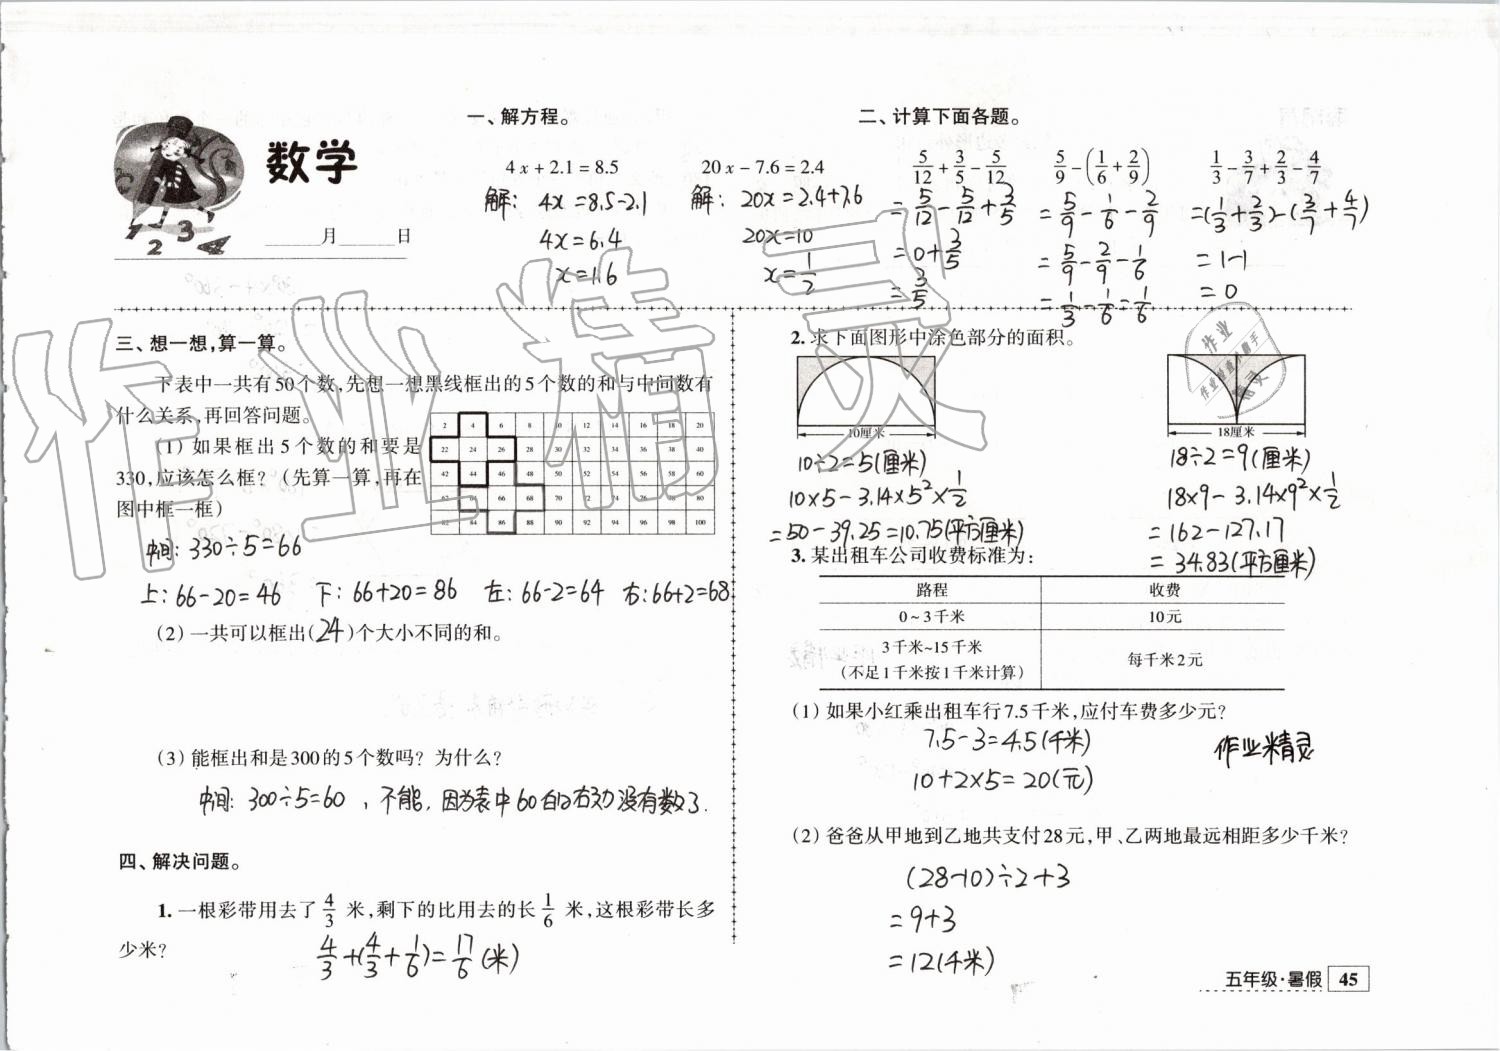 数学
______月______日
一、解方程。
4x+2.1=8.5
解：4x=8.5-2.1
4x=6.4
x=1.6
20x-7.6=2.4
解：20x=2.4+7.6
20x=10
x=1/2
二、计算下面各题。
5/12+3/5-5/12
=5/12-5/12+3/5
=0+3/5
=3/5
5/9-(1/6+2/9)
=5/9-1/6-2/9
=5/9-2/9-1/6
=1/3-1/6=1/6
1/3-3/7+2/3-4/7
=(1/3+2/3)-(3/7+4/7)
=1-1
=0
三、想一想,算一算。
下表中一共有50个数,先想一想黑线框出的5个数的和与中间数有
什么关系,再回答问题。
(1) 如果框出5个数的和要是
330,应该怎么框？(先算一算,再在
图中框一框)
2 4 6 8 10 12 14 16 18 20
22 24 26 28 30 32 34 36 38 40
42 44 46 48 50 52 54 56 58 60
62 64 66 68 70 72 74 76 78 80
82 84 86 88 90 92 94 96 98 100
中间：330÷5=66
上：66-20=46 下：66+20=86 左：66-2=64 右：66+2=68
(2) 一共可以框出(24)个大小不同的和。
(3) 能框出和是300的5个数吗？为什么？
中间：300÷5=60，不能，因为表中60的右边没有数了.
四、解决问题。
1. 一根彩带用去了4/3米,剩下的比用去的长1/6米,这根彩带长多
少米？
4/3+(4/3+1/6)=17/6(米)
2. 求下面图形中涂色部分的面积。
10厘米
10÷2=5(厘米)
10×5-3.14×5²×1/2
=50-39.25=10.75(平方厘米)
18厘米
18÷2=9(厘米)
18×9-3.14×9²×1/2
=162-127.17
=34.83(平方厘米)
3. 某出租车公司收费标准为：
路程 收费
0~3千米 10元
3千米~15千米
(不足1千米按1千米计算) 每千米2元
(1) 如果小红乘出租车行7.5千米,应付车费多少元？
7.5-3=4.5(千米)
10+2×5=20(元)
作业精灵
(2) 爸爸从甲地到乙地共支付28元,甲、乙两地最远相距多少千米？
(28-10)÷2+3
=9+3
=12(千米)
五年级·暑假 45
作业精灵
作业
作业检查小助手
精灵